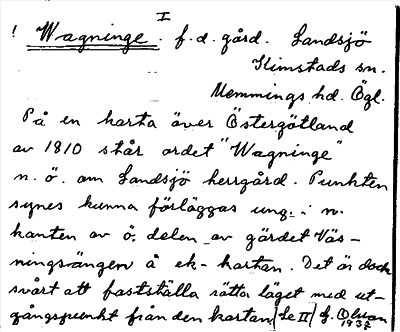 I
! Wagninge. f. d. gård. Landsjö
Kimstads sn.
Memmings hd. Ögl.
På en karta över Östergötland
av 1810 står ordet "Wagninge"
n. ö. om Landsjö herrgård. Punkten
synes kunna förläggas ung. i n.
kanten av ö. delen av gärdet Väs-
ningsängen å ek-kartan. Det är dock
svårt att fastställa rätta läget med ut-
gångspunkt från den kartan (Se II) G. Olson
1937